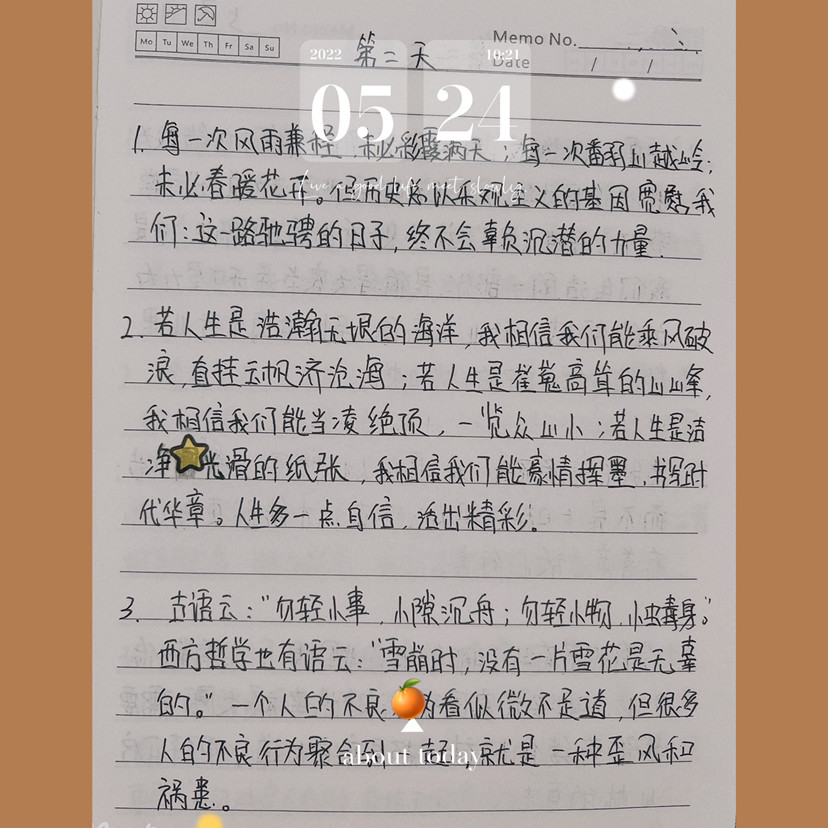 Mo Tu We Th Fr Sa Su
Memo No.
Date / /
第二天
2022 10:21
05 24
1. 每一次风雨兼程，未必彩霞满天；每一次翻山越岭，
未必春暖花开。但历史总以乐观主义的基因宽慰我
们：这一路驰骋的日子，终不会辜负沉潜的力量.
2. 若人生是浩瀚无垠的海洋，我相信我们能乘风破
浪，直挂云帆济沧海；若人生是崔嵬高耸的山峰，
我相信我们能当凌绝顶，一览众山小；若人生是洁
净光滑的纸张，我相信我们能豪情挥墨，书写时
代华章。人生多一点自信，活出精彩。
3. 古语云：“勿轻小事，小隙沉舟；勿轻小物，小虫毒身。”
西方哲学也有语云：“雪崩时，没有一片雪花是无辜
的。”一个人的不良为看似微不足道，但很多
人的不良行为聚合到一起，就是一种歪风和
祸患。
about today